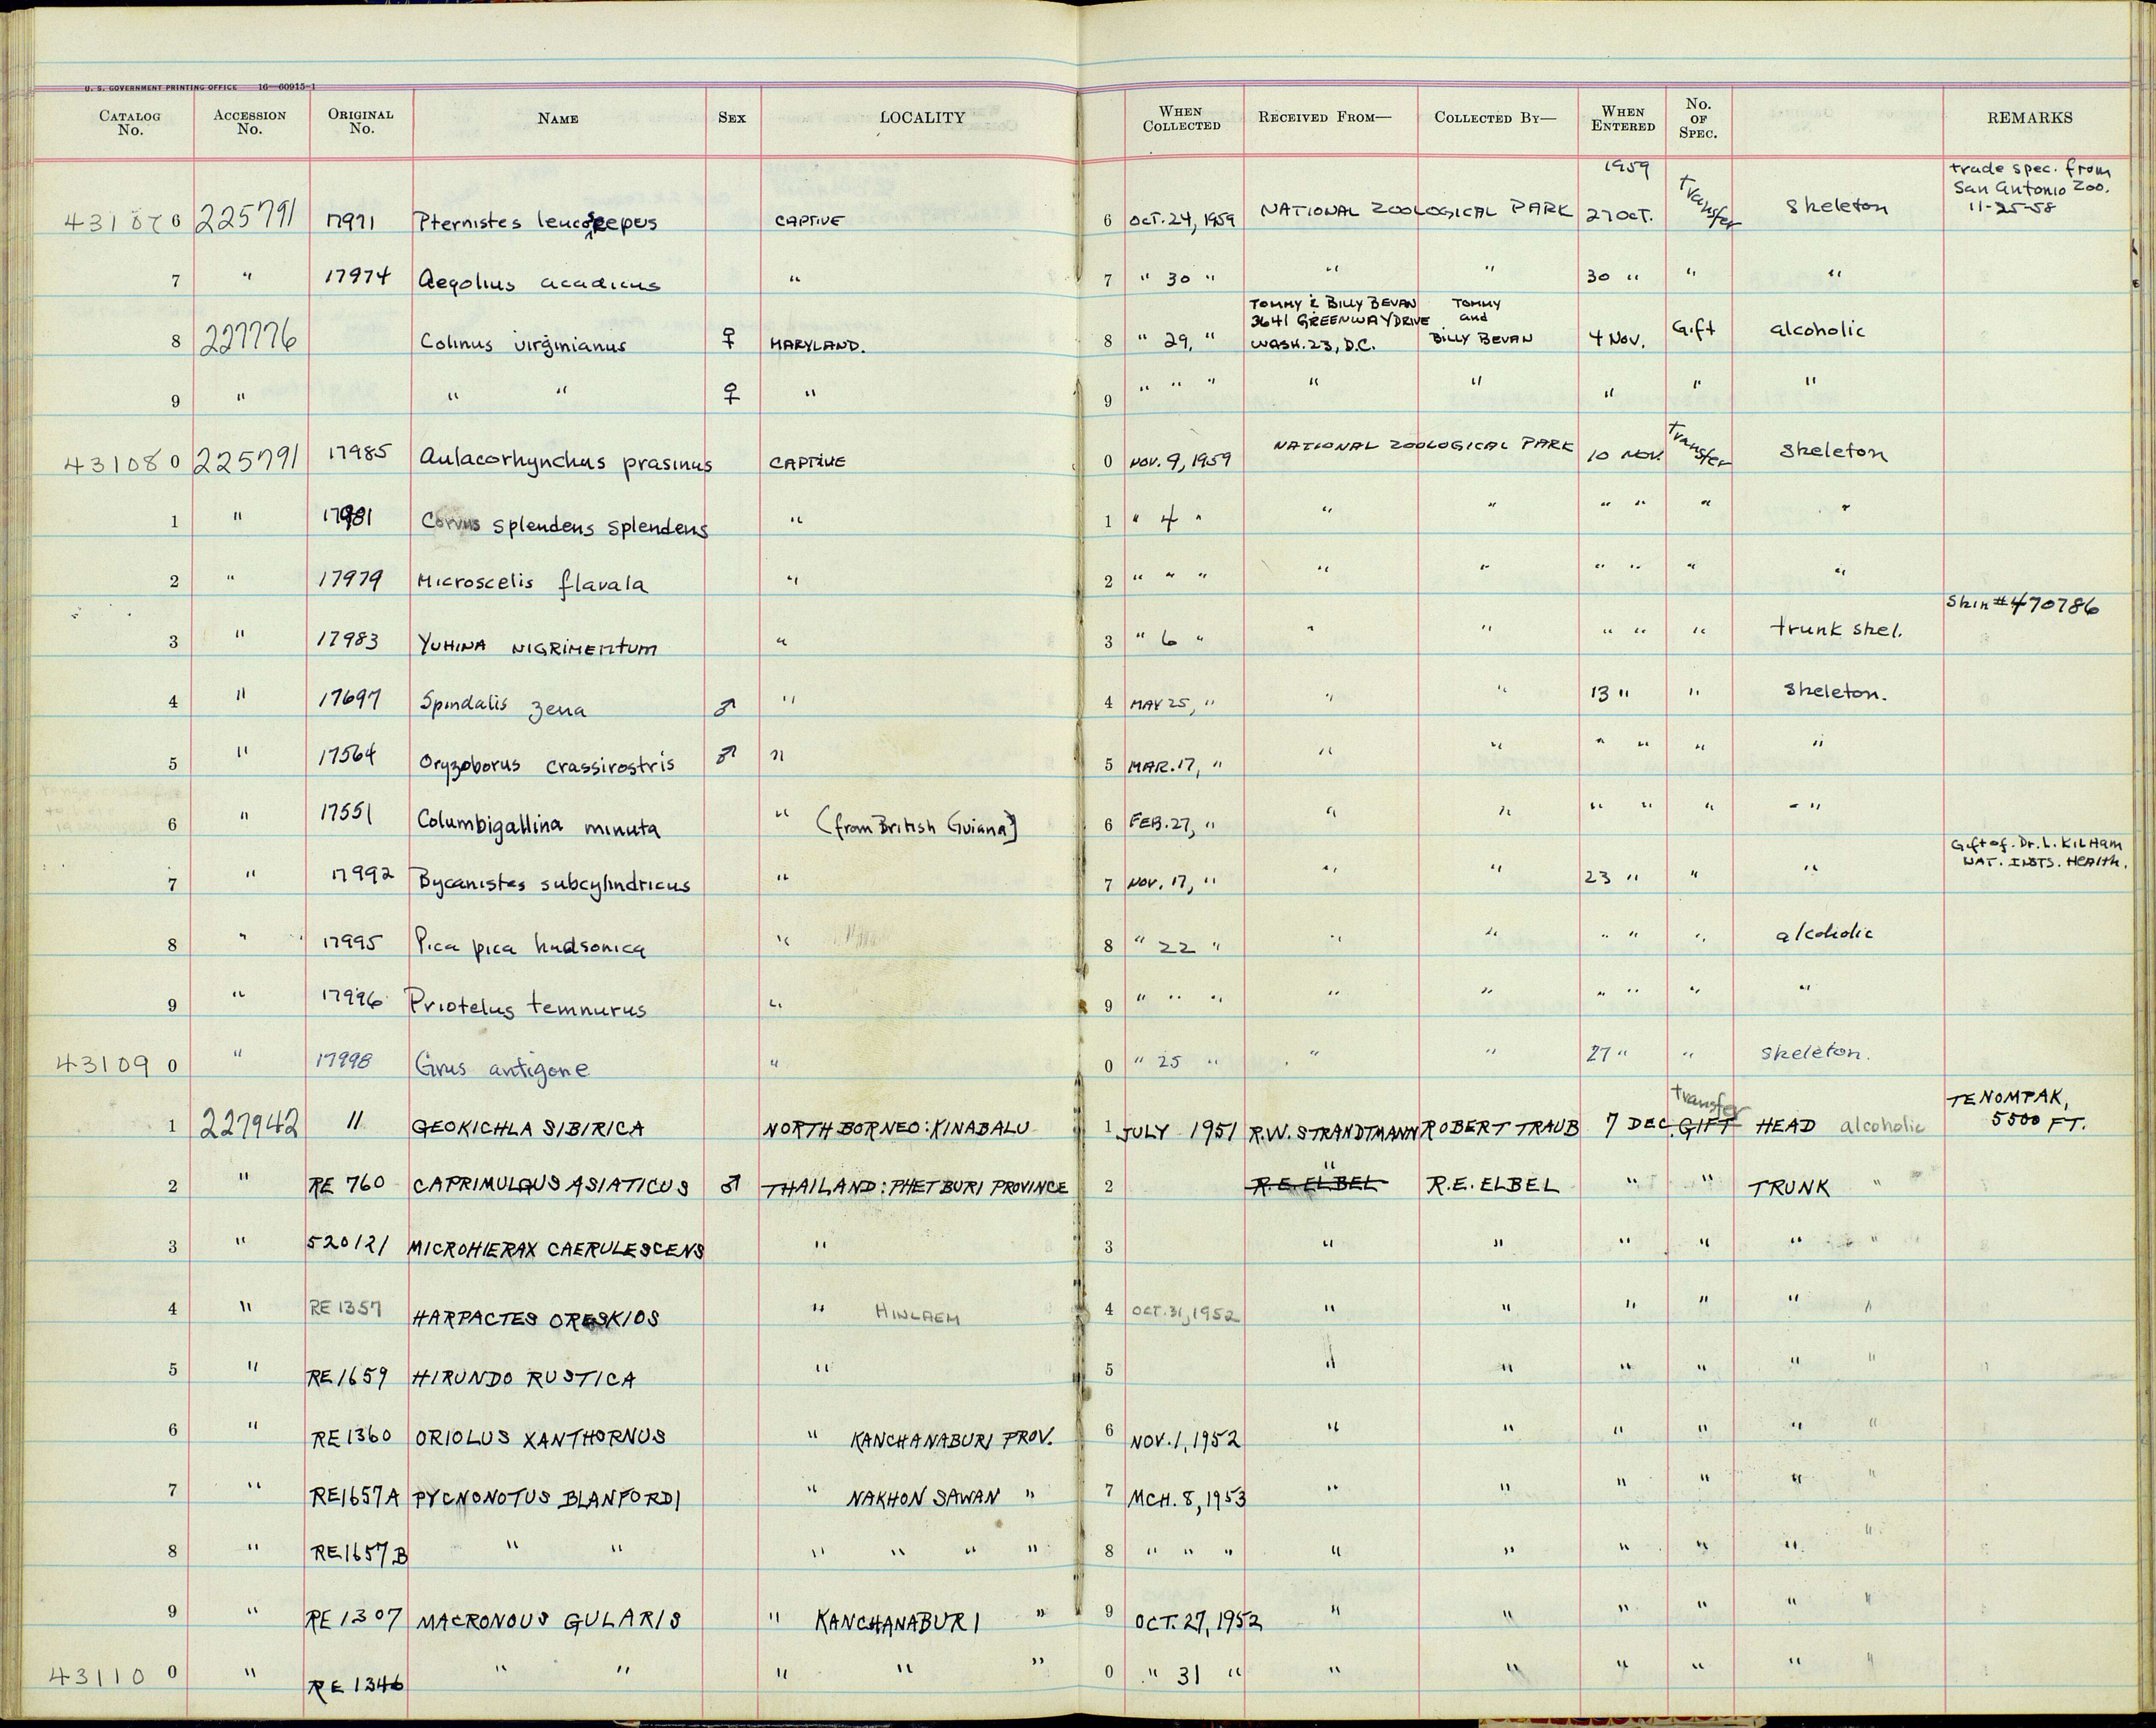 U. S. GOVERNMENT PRINTING OFFICE 16—60915-1
CATALOG No. ACCESSION No. ORIGINAL No. NAME SEX LOCALITY WHEN COLLECTED RECEIVED FROM— COLLECTED BY— WHEN ENTERED No. OF SPEC. REMARKS
431076 225791 17971 Pternistes leucoscepus CAPTIVE 6 OCT. 24, 1959 NATIONAL ZOOLOGICAL PARK 1959 27 OCT. Transfer Skeleton trade spec. from San Antonio Zoo. 11-25-58
7 " 17974 Aegolius acadicus " 7 " 30 " " " 30 " " "
8 227776 Colinus virginianus ♀ MARYLAND. 8 " 29, " TOMMY & BILLY BEVAN 3641 GREENWAY DRIVE WASH. 23, D.C. TOMMY and BILLY BEVAN 4 NOV. Gift alcoholic
9 " " " ♀ " 9 " " " " " " " "
431080 225791 17985 Aulacorhynchus prasinus CAPTIVE 0 NOV. 9, 1959 NATIONAL ZOOLOGICAL PARK 10 NOV. Transfer Skeleton
1 " 17981 Corvus splendens splendens " 1 " 4 " " " " " " "
2 " 17979 Microscelis flavala " 2 " " " " " " " " "
3 " 17983 YUHINA NIGRIMENTUM " 3 " 6 " " " " " " trunk skel. Skin #470786
4 " 17697 Spindalis zena ♂ " 4 MAY 25, " " " 13 " " Skeleton.
5 " 17564 Oryzoborus crassirostris ♂ " 5 MAR. 17, " " " " " " "
6 " 17551 Columbigallina minuta " (from British Guiana) 6 FEB. 27, " " " " " " - "
7 " 17992 Bycanistes subcylindricus " 7 NOV. 17, " " " 23 " " " Gift of Dr. L. KILHAM NAT. INSTS. HEALTH.
8 " 17995 Pica pica hudsonica " 8 " 22 " " " " " " alcoholic
9 " 17996 Priotelus temnurus " 9 " " " " " " " " "
431090 " 17998 Grus antigone " 0 " 25 " " " 27 " " Skeleton.
1 227942 11 GEOKICHLA SIBIRICA NORTH BORNEO: KINABALU 1 JULY 1951 R.W. STRANDTMANN ROBERT TRAUB 7 DEC. GIFT Transfer HEAD alcoholic TENOMPAK, 5500 FT.
2 " RE 760 CAPRIMULGUS ASIATICUS ♂ THAILAND: PHETBURI PROVINCE 2 " R.E. ELBEL R.E. ELBEL " " TRUNK "
3 " 520121 MICROHIERAX CAERULESCENS " 3 " " " " " "
4 " RE 1357 HARPACTES ORESKIOS " HINLAEM 4 OCT. 31, 1952 " " " " " "
5 " RE 1659 HIRUNDO RUSTICA " 5 " " " " " "
6 " RE 1360 ORIOLUS XANTHORNUS " KANCHANABURI PROV. 6 NOV. 1, 1952 " " " " " "
7 " RE1657A PYCNONOTUS BLANFORDI " NAKHON SAWAN " 7 MCH. 8, 1953 " " " " " "
8 " RE1657B " " " " " " 8 " " " " " " " " "
9 " RE 1307 MACRONOUS GULARIS " KANCHANABURI " 9 OCT. 27, 1952 " " " " " "
431100 " RE 1346 " " " " " 0 " 31 " " " " " " "